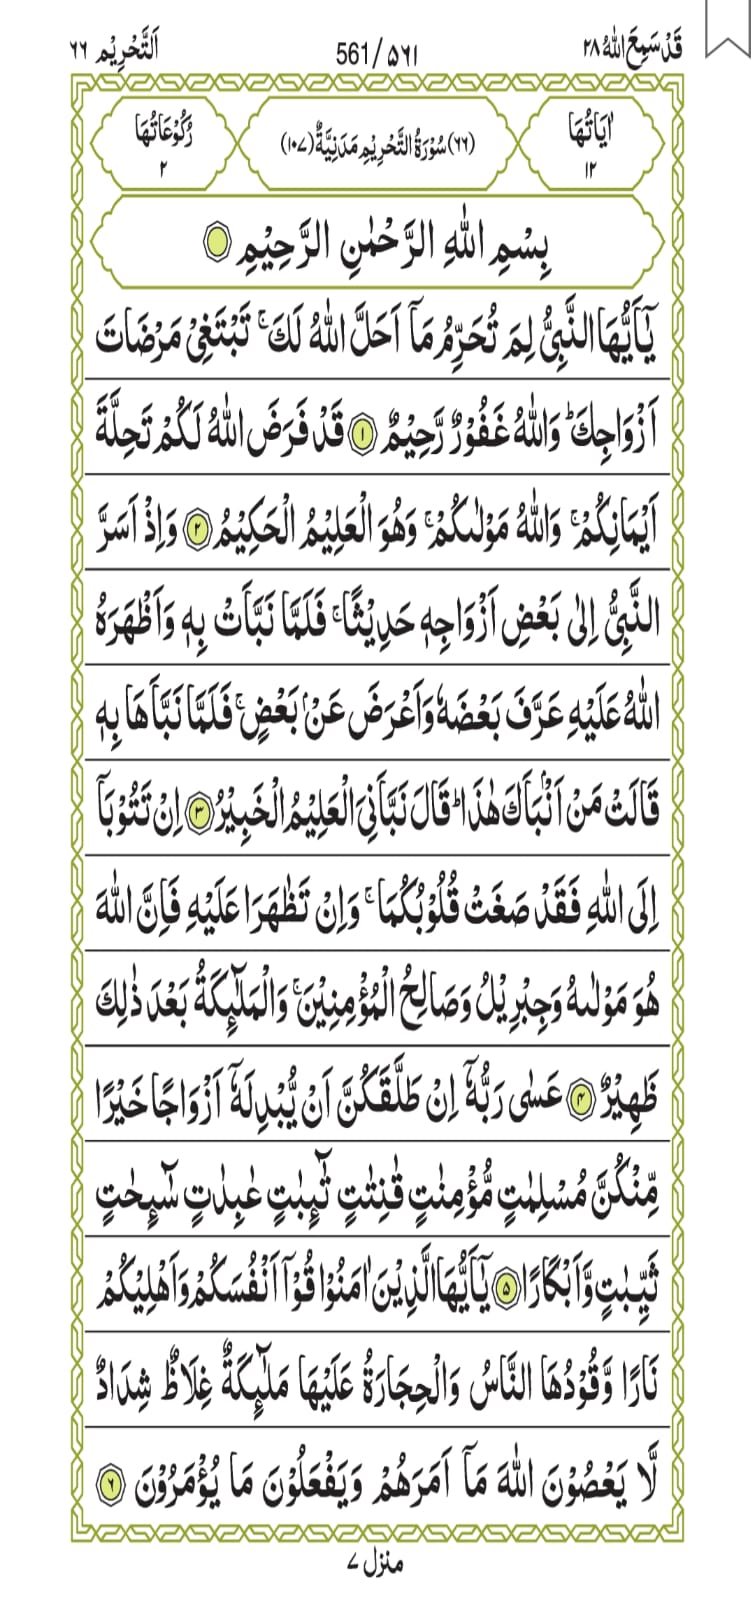 قَدْ سَمِعَ اللّٰهُ ۲۸
561/۵۶۱
اَلتَّحْرِيْم ۶۶
اٰيَاتُهَا ۱۲
(۶۶) سُوْرَةُ التَّحْرِيْمِ مَدَنِيَّةٌ (۱۰۷)
رُكُوْعَاتُهَا ۲
بِسْمِ اللّٰهِ الرَّحْمٰنِ الرَّحِيْمِ
يٰۤاَيُّهَا النَّبِيُّ لِمَ تُحَرِّمُ مَاۤ اَحَلَّ اللّٰهُ لَكَ ۚ تَبْتَغِيْ مَرْضَاتَ
اَزْوَاجِكَ ؕ وَاللّٰهُ غَفُوْرٌ رَّحِيْمٌ ۱ قَدْ فَرَضَ اللّٰهُ لَكُمْ تَحِلَّةَ
اَيْمَانِكُمْ ۚ وَاللّٰهُ مَوْلٰىكُمْ ۚ وَهُوَ الْعَلِيْمُ الْحَكِيْمُ ۲ وَاِذْ اَسَرَّ
النَّبِيُّ اِلٰى بَعْضِ اَزْوَاجِهٖ حَدِيْثًا ۚ فَلَمَّا نَبَّاَتْ بِهٖ وَاَظْهَرَهُ
اللّٰهُ عَلَيْهِ عَرَّفَ بَعْضَهٗ وَاَعْرَضَ عَنْۢ بَعْضٍ ۚ فَلَمَّا نَبَّاَهَا بِهٖ
قَالَتْ مَنْ اَنْۢبَاَكَ هٰذَا ؕ قَالَ نَبَّاَنِيَ الْعَلِيْمُ الْخَبِيْرُ ۳ اِنْ تَتُوْبَاۤ
اِلَى اللّٰهِ فَقَدْ صَغَتْ قُلُوْبُكُمَا ۚ وَاِنْ تَظٰهَرَا عَلَيْهِ فَاِنَّ اللّٰهَ
هُوَ مَوْلٰىهُ وَجِبْرِيْلُ وَصَالِحُ الْمُؤْمِنِيْنَ ۚ وَالْمَلٰٓئِكَةُ بَعْدَ ذٰلِكَ
ظَهِيْرٌ ۴ عَسٰى رَبُّهٗۤ اِنْ طَلَّقَكُنَّ اَنْ يُّبْدِلَهٗۤ اَزْوَاجًا خَيْرًا
مِّنْكُنَّ مُسْلِمٰتٍ مُّؤْمِنٰتٍ قٰنِتٰتٍ تٰٓئِبٰتٍ عٰبِدٰتٍ سٰٓئِحٰتٍ
ثَيِّبٰتٍ وَّاَبْكَارًا ۵ يٰۤاَيُّهَا الَّذِيْنَ اٰمَنُوْا قُوْۤا اَنْفُسَكُمْ وَاَهْلِيْكُمْ
نَارًا وَّقُوْدُهَا النَّاسُ وَالْحِجَارَةُ عَلَيْهَا مَلٰٓئِكَةٌ غِلَاظٌ شِدَادٌ
لَّا يَعْصُوْنَ اللّٰهَ مَاۤ اَمَرَهُمْ وَيَفْعَلُوْنَ مَا يُؤْمَرُوْنَ ۶
منزل ۷